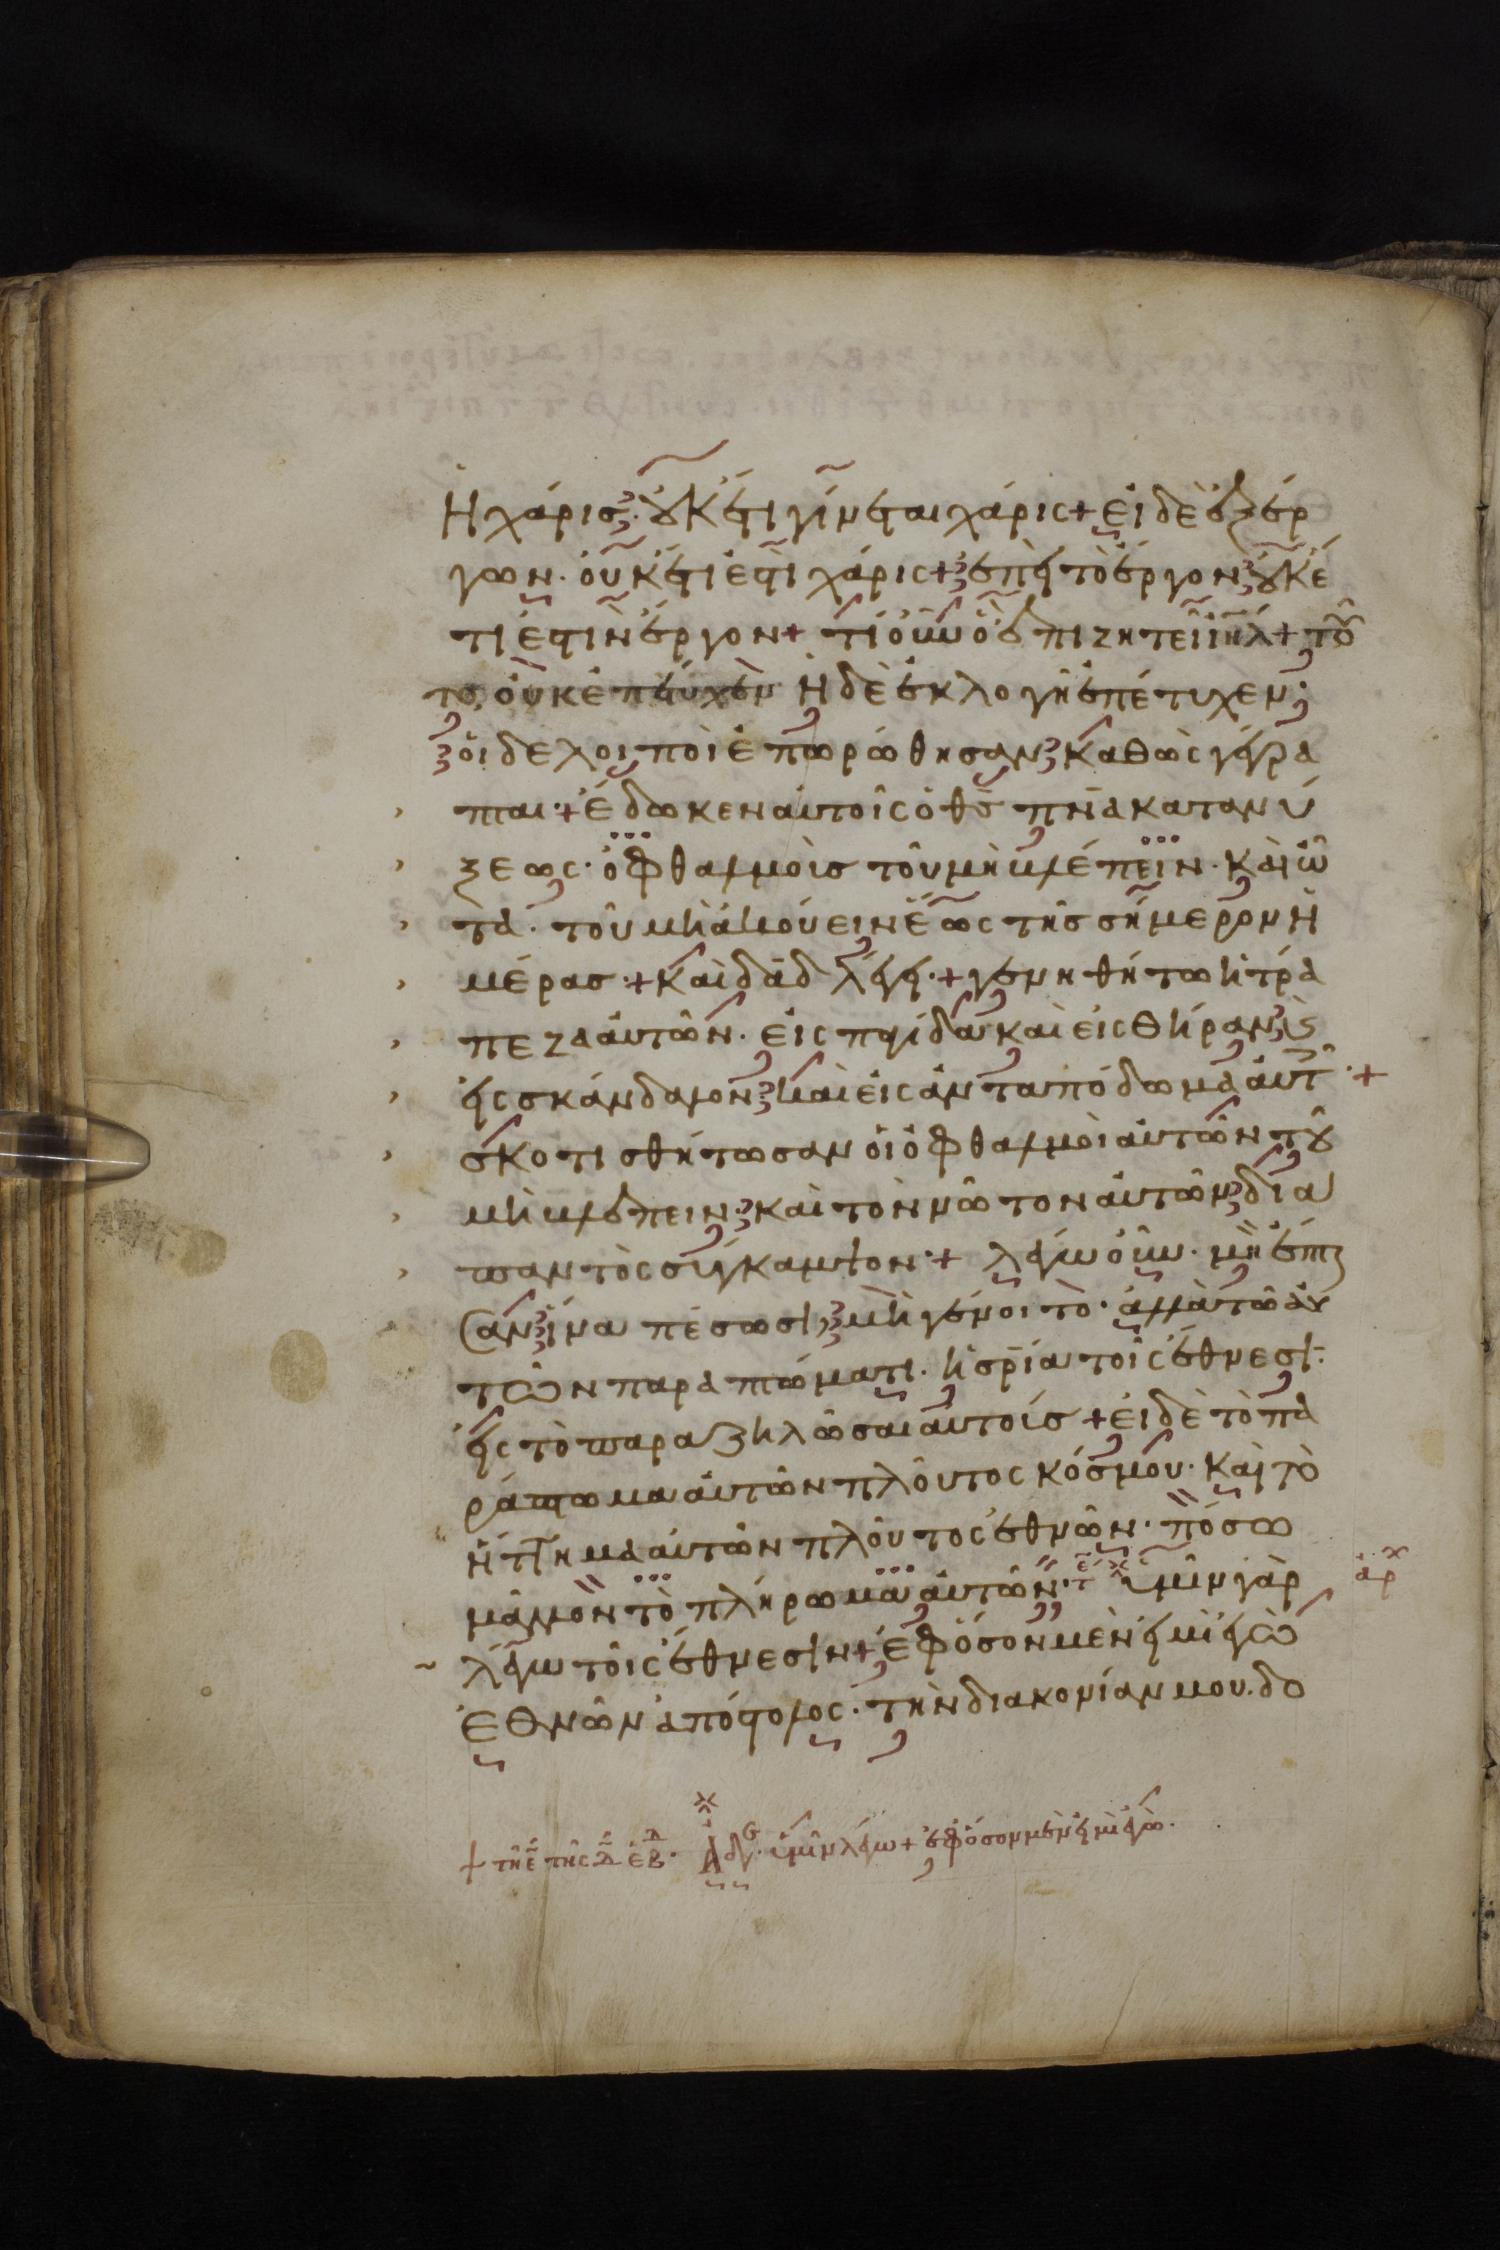 ἡ χάρις· οὐκέτι γίνεται χάρις + εἰ δὲ ἐξ ἔρ
γων· οὐκέτι ἐστὶ χάρις + ἐπεὶ τὸ ἔργον οὐκέ
τι ἐστὶν ἔργον + τί οὖν ὃ ἐπιζητεῖ ἰηλ + τοῦ
το οὐκ ἐπέτυχεν ἡ δὲ ἐκλογὴ ἐπέτυχεν·
οἱ δὲ λοιποὶ ἐπωρώθησαν καθὼς γέγρα
πται· + ἔδωκεν αὐτοῖς ὁ θς πνα κατανύ
ξεως· ὀφθαλμοὺς τοῦ μὴ βλέπειν· καὶ ὦ
τα· τοῦ μὴ ἀκούειν ἕως τῆς σήμερον ἡ
μέρας· + καὶ δαδ λέγει· + γενηθήτω ἡ τρά
πεζα αὐτῶν· εἰς παγίδα καὶ εἰς θήραν καὶ
εἰς σκάνδαλον καὶ εἰς ἀνταπόδομα αὐτ· +
σκοτισθήτωσαν οἱ ὀφθαλμοὶ αὐτῶν τοῦ
μὴ βλέπειν· καὶ τὸν νῶτον αὐτῶν δια
παντὸς σύγκαμψον· + λέγω οὖν· μὴ ἔπται
σαν ἵνα πέσωσι, μὴ γένοιτο· ἀλλὰ τῶ αὐ
τῶν παραπτώματι· ἡ σρία τοῖς ἔθνεσι·
εἰς τὸ παραζηλῶσαι αὐτούς + εἰ δὲ τὸ πα
ράπτωμα αὐτῶν πλοῦτος κόσμου· καὶ τὸ
ἥττημα αὐτῶν πλοῦτος ἐθνῶν· πόσω
μᾶλλον τὸ πλήρωμα αὐτῶν· τε ὑμῖν γὰρ ἀρχ
λέγω τοῖς ἔθνεσιν + ἐφ ὅσον μὲν εἰμὶ ἐγὼ
ἐθνῶν ἀπόστολος· τὴν διακονίαν μου δο
τῆ ε τῆς δ ἑβδ· ἀδ· ὑμῖν λέγω + ἐφ ὅσον μὲν εἰμὶ ἐγὼ·